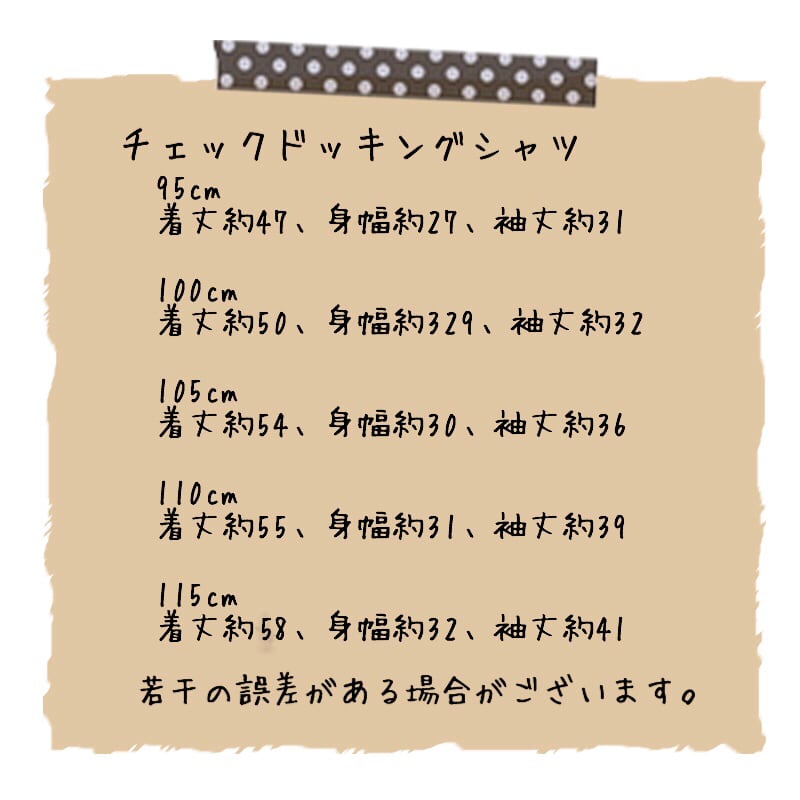 チェックドッキングシャツ
95cm
着丈約47、身幅約27、袖丈約31
100cm
着丈約50、身幅約329、袖丈約32
105cm
着丈約54、身幅約30、袖丈約36
110cm
着丈約55、身幅約31、袖丈約39
115cm
着丈約58、身幅約32、袖丈約41
若干の誤差がある場合がございます。